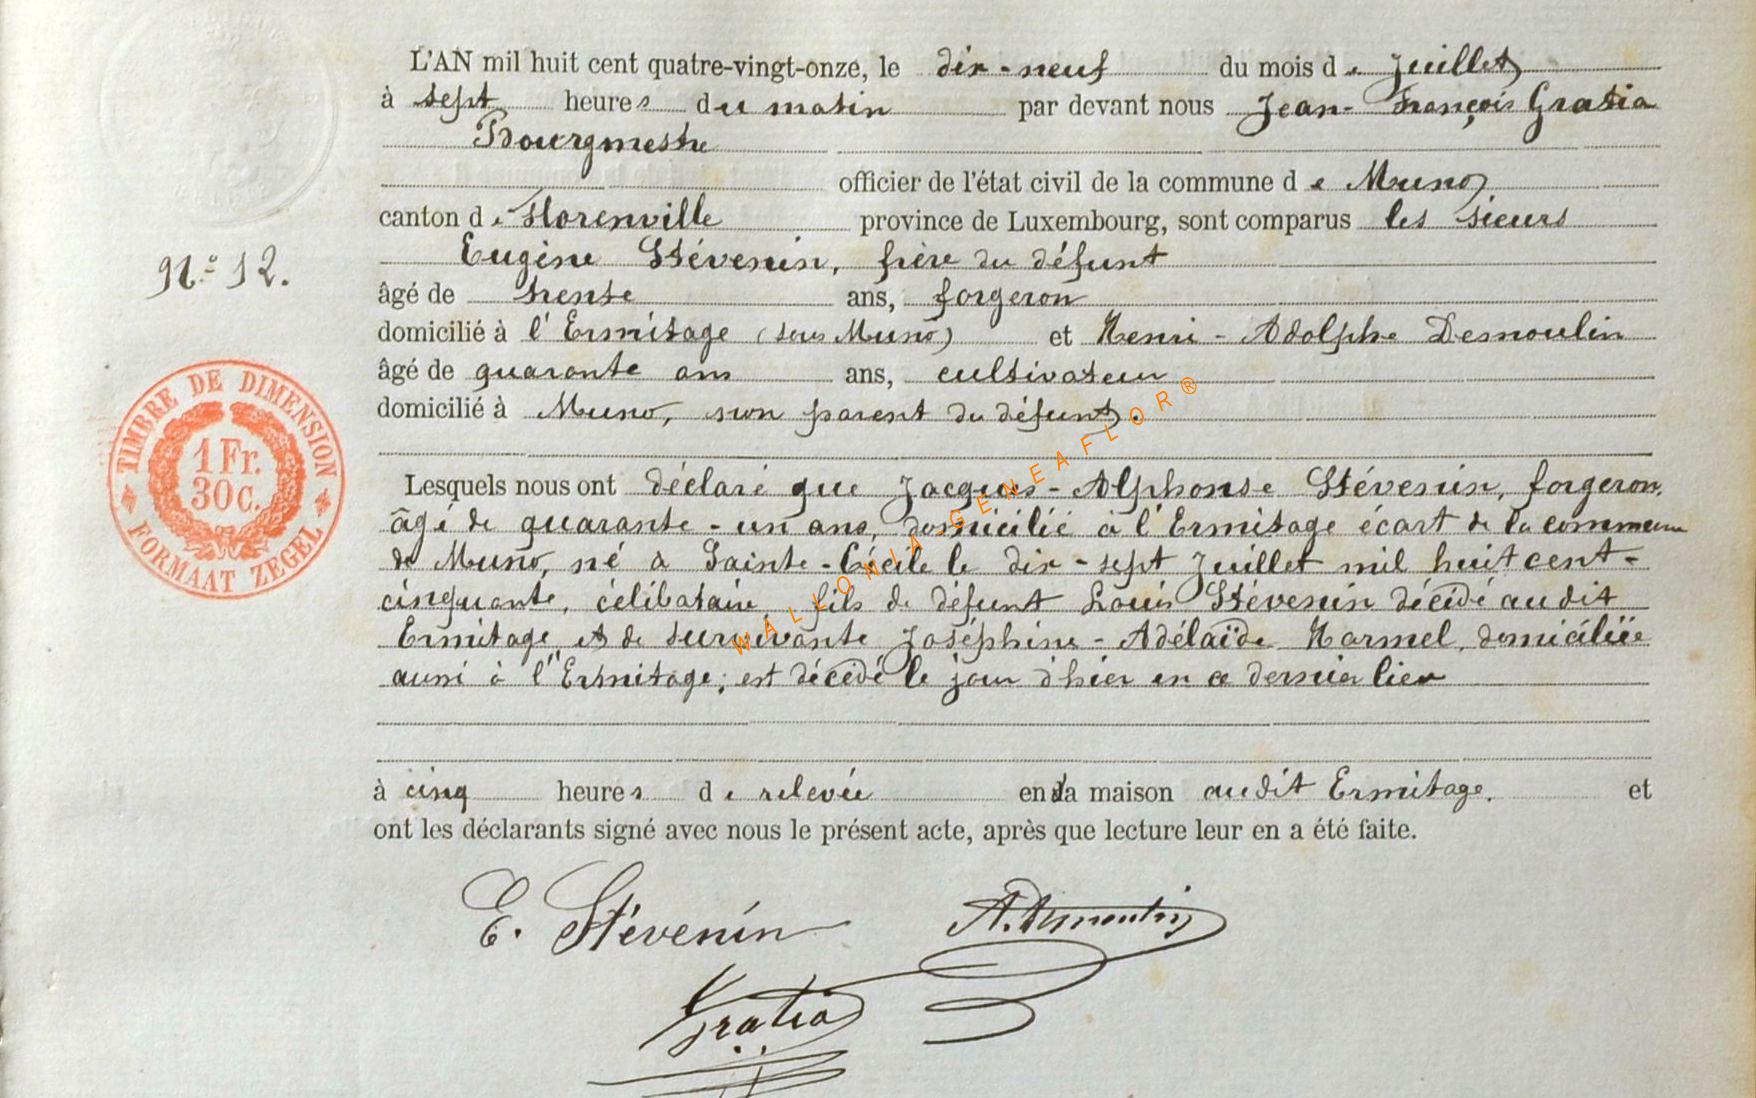 L'AN mil huit cent quatre-vingt-onze, le dix-neuf du mois de Juillet
à sept heures du matin par devant nous Jean-François Gratia
Bourgmestre
officier de l'état civil de la commune de Muno
canton de Florenville province de Luxembourg, sont comparus les sieurs
Eugène Stévenin, frère du défunt
N.º 12.
âgé de trente ans, forgeron
domicilié à l'Ermitage (sous Muno) et Henri-Adolphe Desmoulin
âgé de quarante ans ans, cultivateur
domicilié à Muno, non parent du défunt.
TIMBRE DE DIMENSION
1 Fr.
30 C.
FORMAAT ZEGEL
WALLONIA GENEAFLOR®
Lesquels nous ont déclaré que Jacques-Alphonse Stévenin, forgeron,
âgé de quarante-un ans, domicilié à l'Ermitage écart de la commune
de Muno, né à Sainte-Cécile le dix-sept Juillet mil huit cent-
cinquante, célibataire, fils de défunt Louis Stévenin décédé au dit
Ermitage, et de survivante Joséphine-Adélaïde Harmel, domiciliée
aussi à l'Ermitage; est décédé le jour d'hier en ce dernier lieu
à cinq heures de relevée en la maison audit Ermitage. et
ont les déclarants signé avec nous le présent acte, après que lecture leur en a été faite.
E. Stévenin A. Desmoulin
Gratia